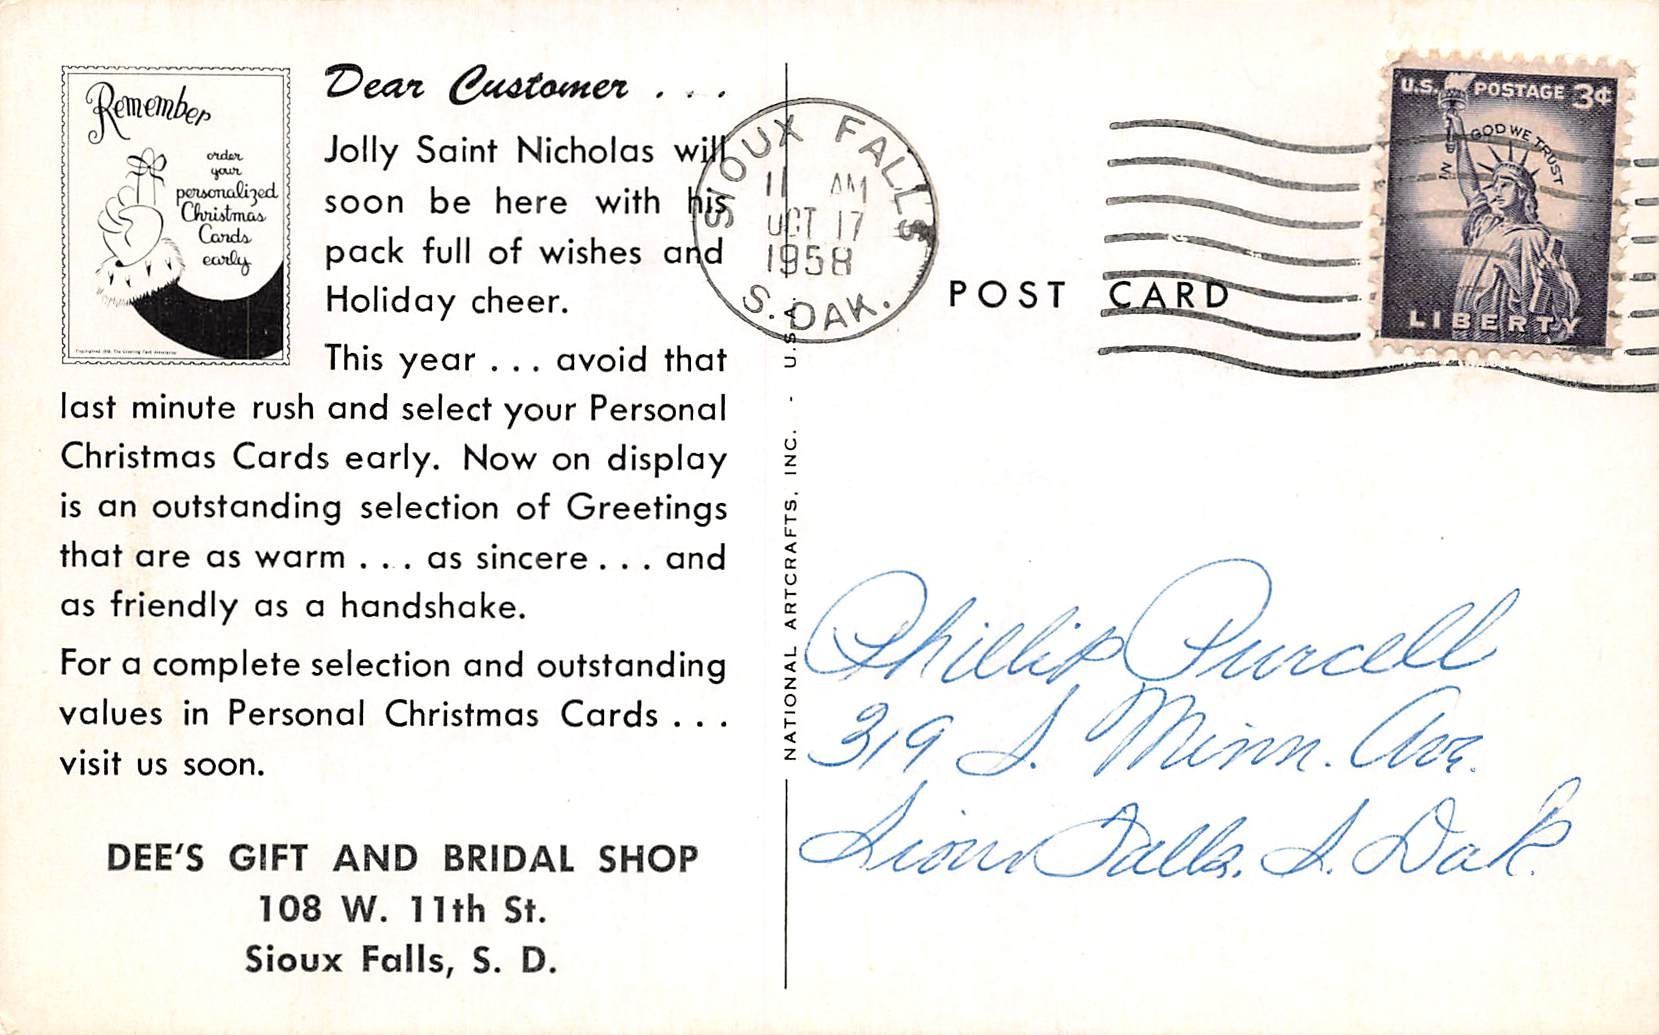 Remember
order
your
personalized
Christmas
Cards
early
Dear Customer . . .
Jolly Saint Nicholas will
soon be here with his
pack full of wishes and
Holiday cheer.
This year . . . avoid that
last minute rush and select your Personal
Christmas Cards early. Now on display
is an outstanding selection of Greetings
that are as warm . . . as sincere . . . and
as friendly as a handshake.
For a complete selection and outstanding
values in Personal Christmas Cards . . .
visit us soon.
DEE'S GIFT AND BRIDAL SHOP
108 W. 11th St.
Sioux Falls, S. D.
NATIONAL ARTCRAFTS, INC. - U.S.A.
SIOUX FALLS
11 AM
OCT 17
1958
S. DAK.
POST CARD
U.S. POSTAGE 3¢
IN GOD WE TRUST
LIBERTY
Phillip Purcell
319 S. Minn. Ave.
Sioux Falls, S. Dak.